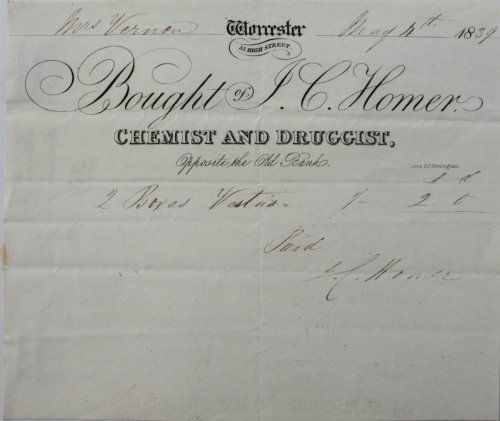 Mrs Vernon Worcester May 4th 1839
55 HIGH STREET
Bought of J. C. Homer.
CHEMIST AND DRUGGIST,
Opposite, the Old Bank.
s d
2 Boxes 1/- 2.0
Paid
J. C. Homer